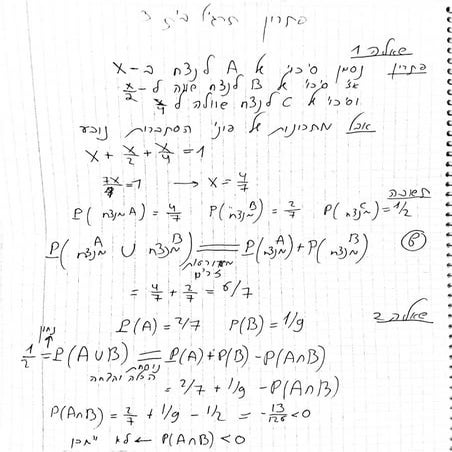 פתרון תרגיל בית 3
שאלה 1
פתרון נסמן סיכוי של A לנצח ב-X
אז סיכוי של B לנצח שווה ל-x/2
וסיכוי של C לנצח שווה ל x/4
אבל מתכונות של פונ' הסתברות נובע
X + x/2 + x/4 = 1
7x/4 = 1 → X = 4/7
תשובה
P(A מנצח) = 4/7 P(B מנצח) = 2/7 P(C מנצח) = 1/2
P(A מנצח ∪ B מנצח) = P(A מנצח) + P(B מנצח)
מאורעות זרים
= 4/7 + 2/7 = 6/7
שאלה 2
P(A) = 2/7 P(B) = 1/9
נתון
1/2 = P(A∪B) = P(A) + P(B) - P(A∩B)
= 2/7 + 1/9 - P(A∩B)
P(A∩B) = 2/7 + 1/9 - 1/2 = -13/126 < 0
P(A∩B) < 0 → לא יתכן